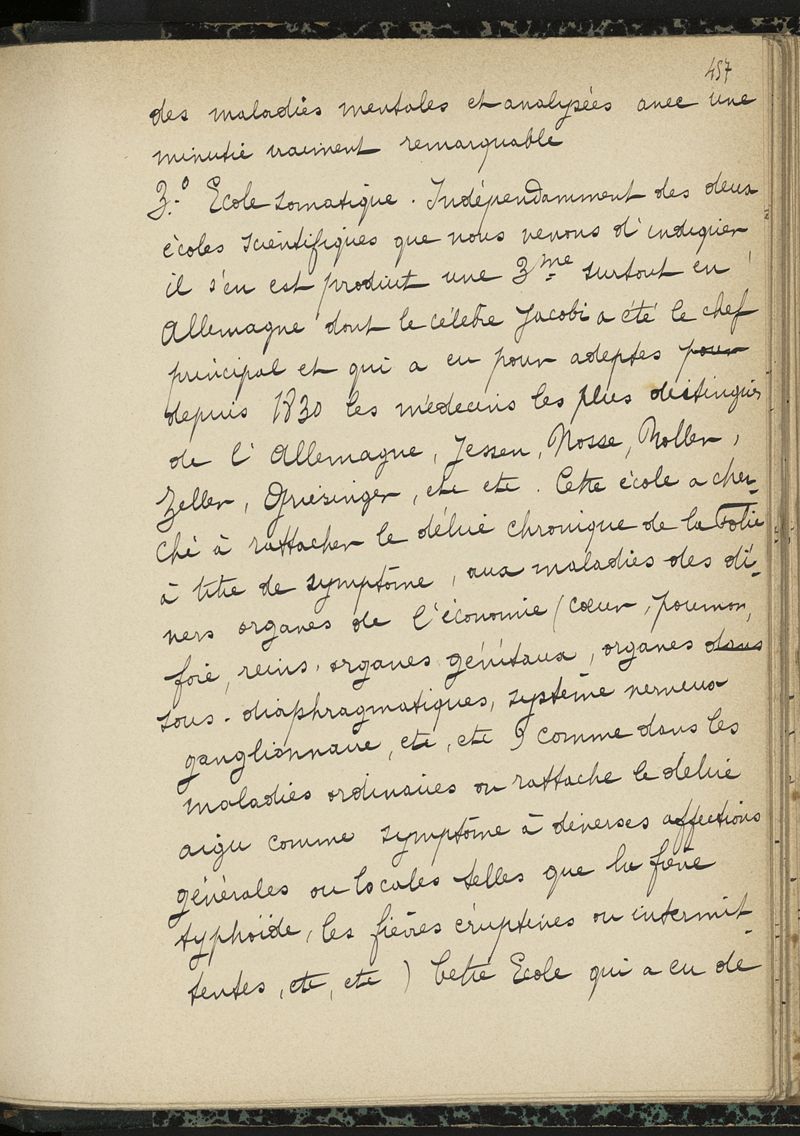 457
des maladies mentales et analysées avec une
minutie vraiment remarquable
3.º Ecole somatique. Indépendamment des deux
écoles scientifiques que nous venons d'indiquer
il s'en est produit une 3me surtout en
Allemagne dont le célèbre Jacobi a été le chef
principal et qui a eu pour adeptes pour
depuis 1830 les médecins les plus distingués
de l'Allemagne, Jessen, Nosse, Roller,
Zeller, Griesinger, etc etc. Cette école a cher-
ché à rattacher le délire chronique de la folie
à titre de symptôme, aux maladies des di-
vers organes de l'économie (cœur, poumon,
foie, reins, organes génitaux, organes dans
sous-diaphragmatiques, système nerveux
ganglionnaire, etc, etc) comme dans les
maladies ordinaires on rattache le délire
aigu comme symptôme à diverses affections
générales ou locales telles que la fièvre
typhoïde, les fièvres éruptives ou intermit-
tentes, etc, etc) Cette Ecole qui a eu de